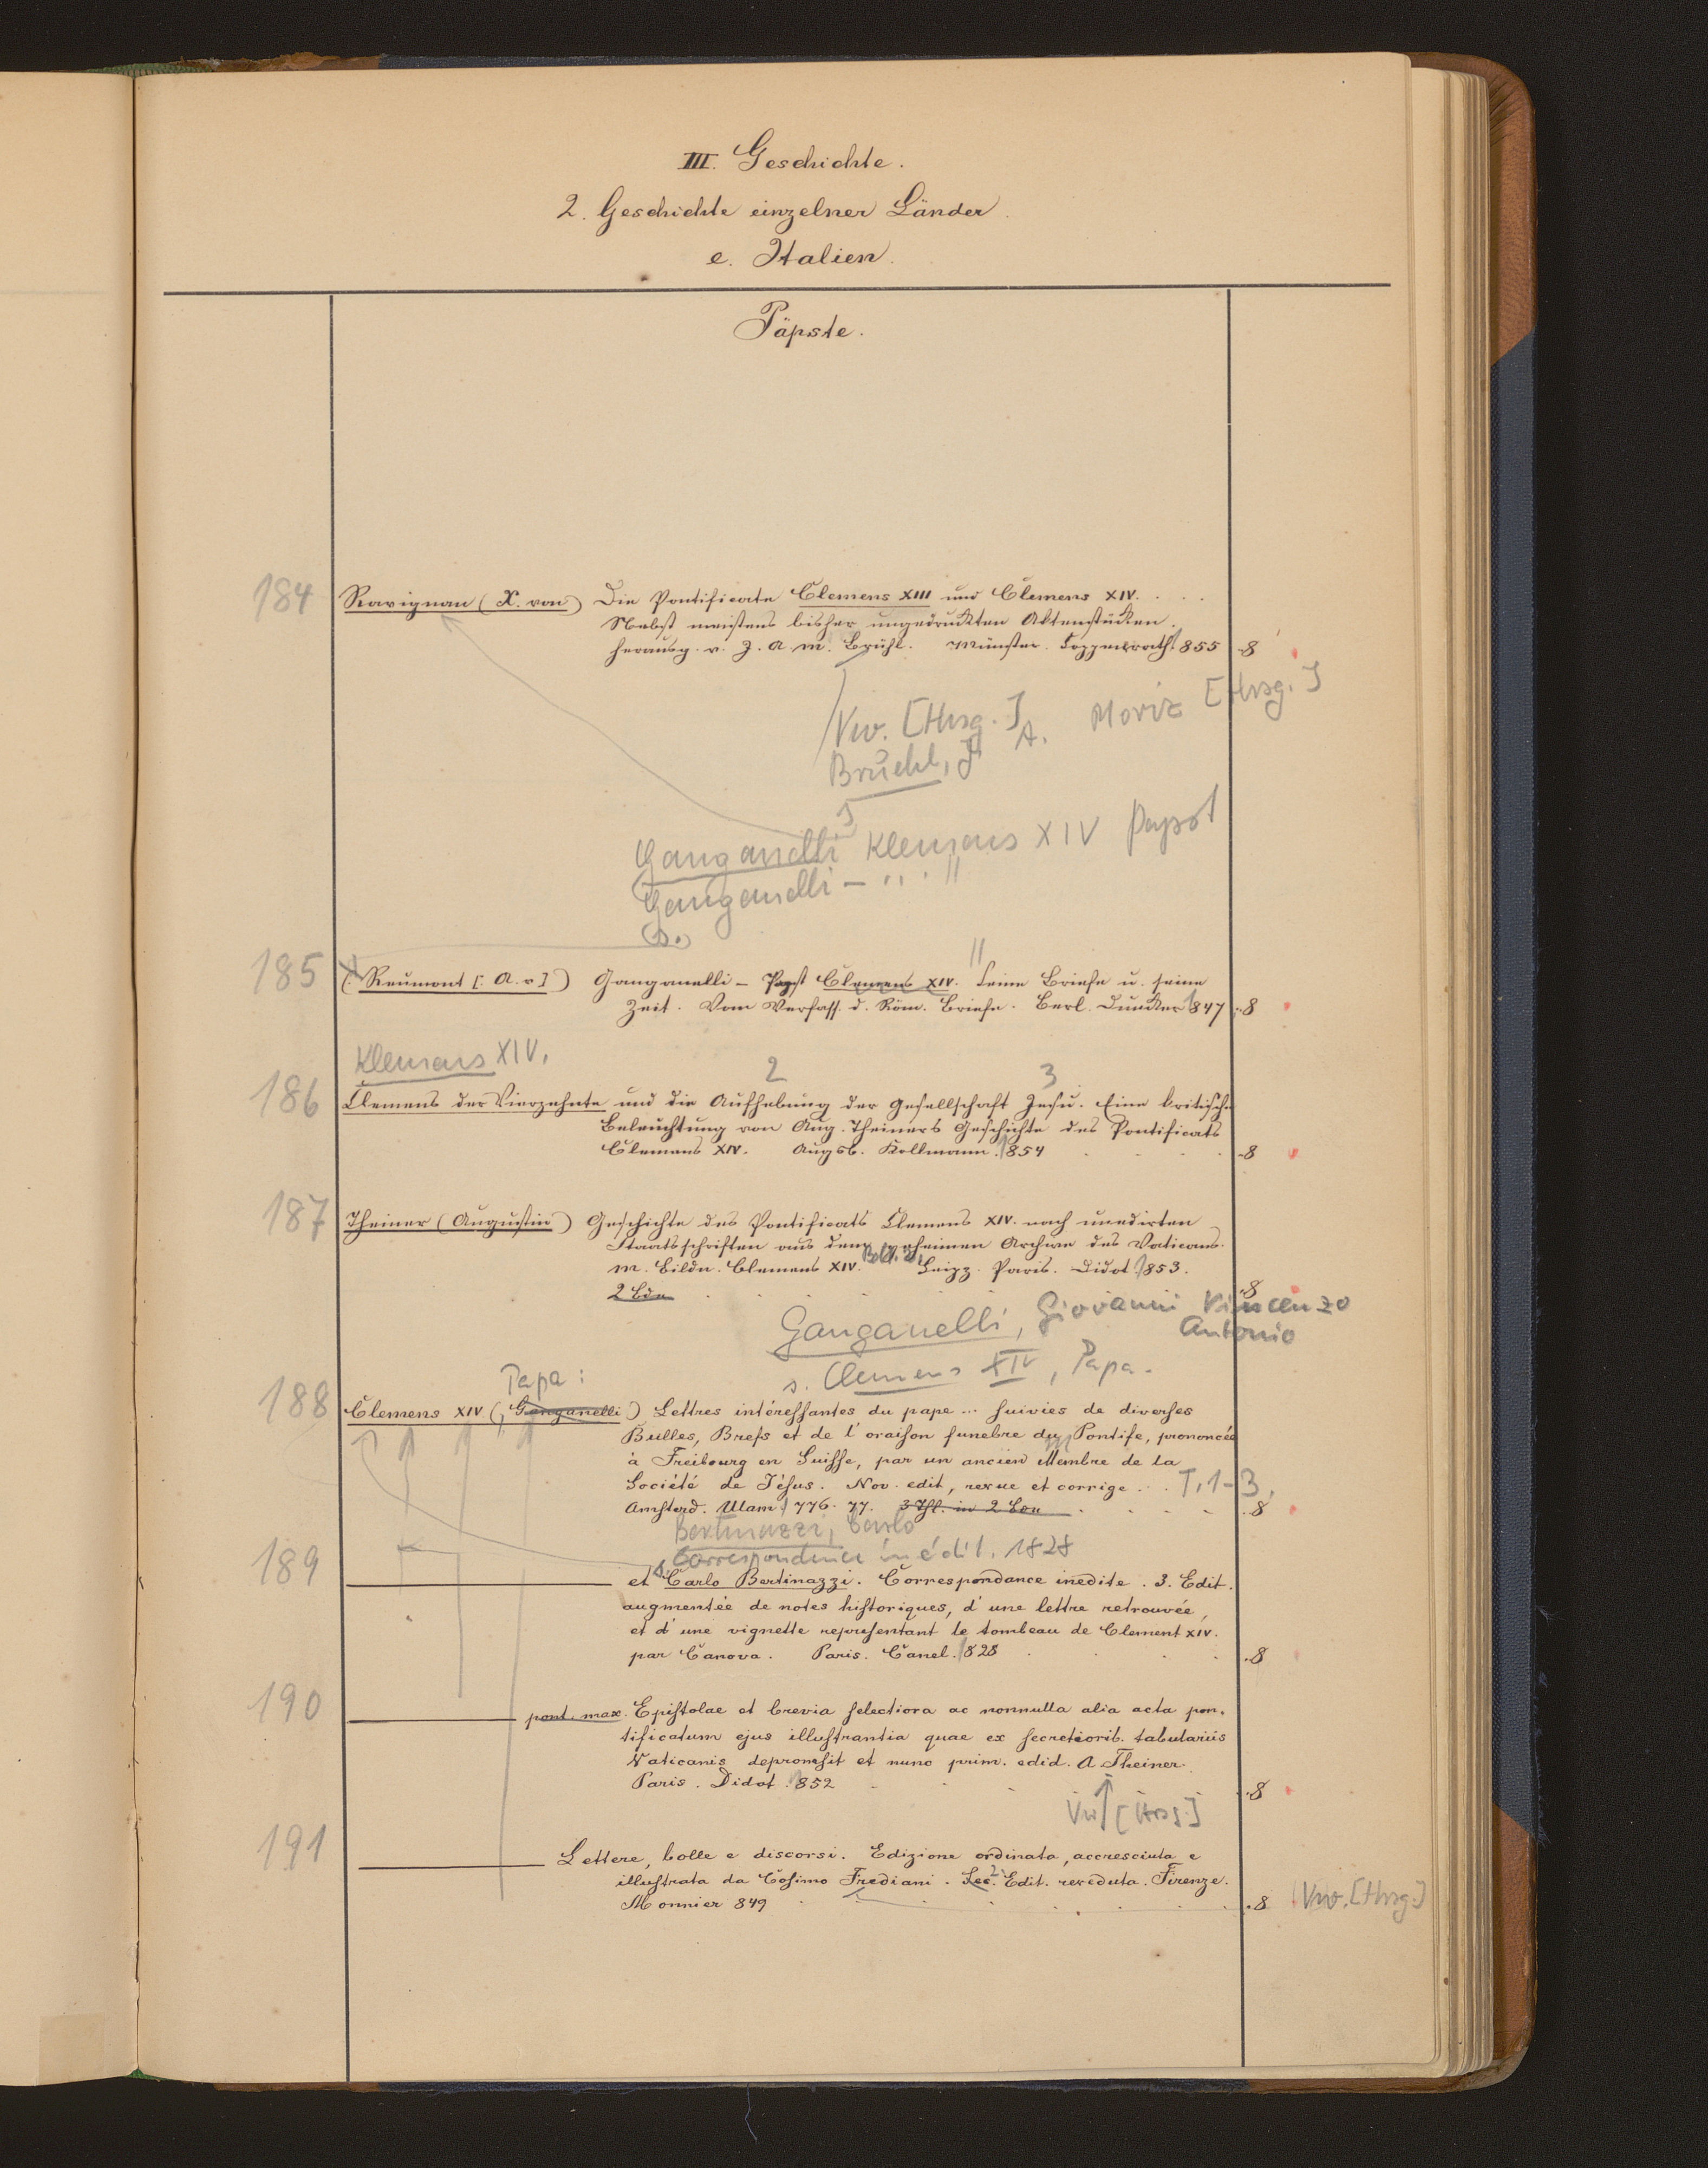 III. Geschichte.
2. Geschichte einzelner Länder.
e. Italien.
Päpste.
184 Ravignan (X. von) Die Pontificate Clemens XIII und Clemens XIV. . . .
Nebst meistens bisher ungedruckten Aktenstücken.
herausg. v. J. A. M. Brühl. Münster. Coppenrath 1855 8
Vw. [Hrsg.]
Bruehl, J. A. Moriz [Hrsg.]
Ganganelli Klemens XIV Papst
Ganganelli – " . "
s.
185 (: Reumont [: A. v]) Ganganelli – Papst Clemens XIV. Seine Briefe u. seine
Zeit. Vom Verfass. d. Röm. Briefe. Berl. Duncker 1847 8
Klemens XIV.
2 3
186 Clemens der Vierzehnte und die Aufhebung der Gesellschaft Jesu. Eine kritische
Beleuchtung von Aug. Theiners Geschichte des Pontificats
Clemens XIV. Augsb. Kollmann. 1854 8
187 Theiner (Augustin) Geschichte des Pontificats Clemens XIV. nach unedirten
Staatsschriften aus dem geheimen Archive des Vaticans.
m. Bildn. Clemens XIV. Leipz. Paris. Didot 1853.
2 Bde 8
Ganganelli, Giovanni Vincenzo
Antonio
s. Clemens XIV, Papa.
Papa:
188 Clemens XIV (, Ganganelli) Lettres intéressantes du pape ... suivies de diverses
Bulles, Brefs et de l'oraison funebre du Pontife, prononcée
à Freibourg en Suisse, par un ancien Membre de la
Société de Jésus. Nov. edit, revue et corrige . . T. 1-3.
Amsterd. Ulam 1776. 77. 3 Thl. in 2 Bdn 8
Bertinazzi, Carlo
s. Correspondence inédit. 1828
189 et Carlo Bertinazzi. Correspondance inedite. 3. Edit.
augmentée de notes historiques, d'une lettre retrouvée,
et d'une vignette representant le tombeau de Clement XIV.
par Canova. Paris. Canel. 1828 8
190 pont. max. Epistolae et brevia selectiora ac nonnulla alia acta pon-
tificatum ejus illustrantia quae ex secretiorib. tabulariis
Vaticanis depromsit et nunc prim. edid. A Theiner.
Paris. Didot. 1852 8
Vw [Hrsg.]
191 Lettere, bolle e discorsi. Edizione ordinata, accresciuta e
illustrata da Cosimo Frediani. Sec. 2. Edit. reveduta. Firenze.
Monnier 849 8 Vw. [Hrsg.]